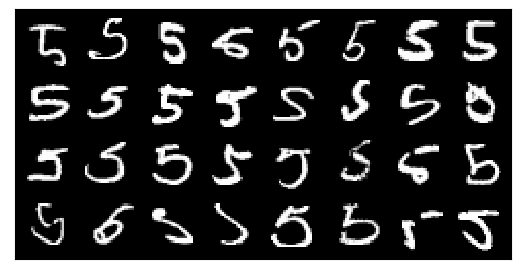 5 5 5 5 5 5 5 5
5 5 5 5 5 5 5
5 5 5 5 5 5 5 5
5 5 5 5 5 5 5